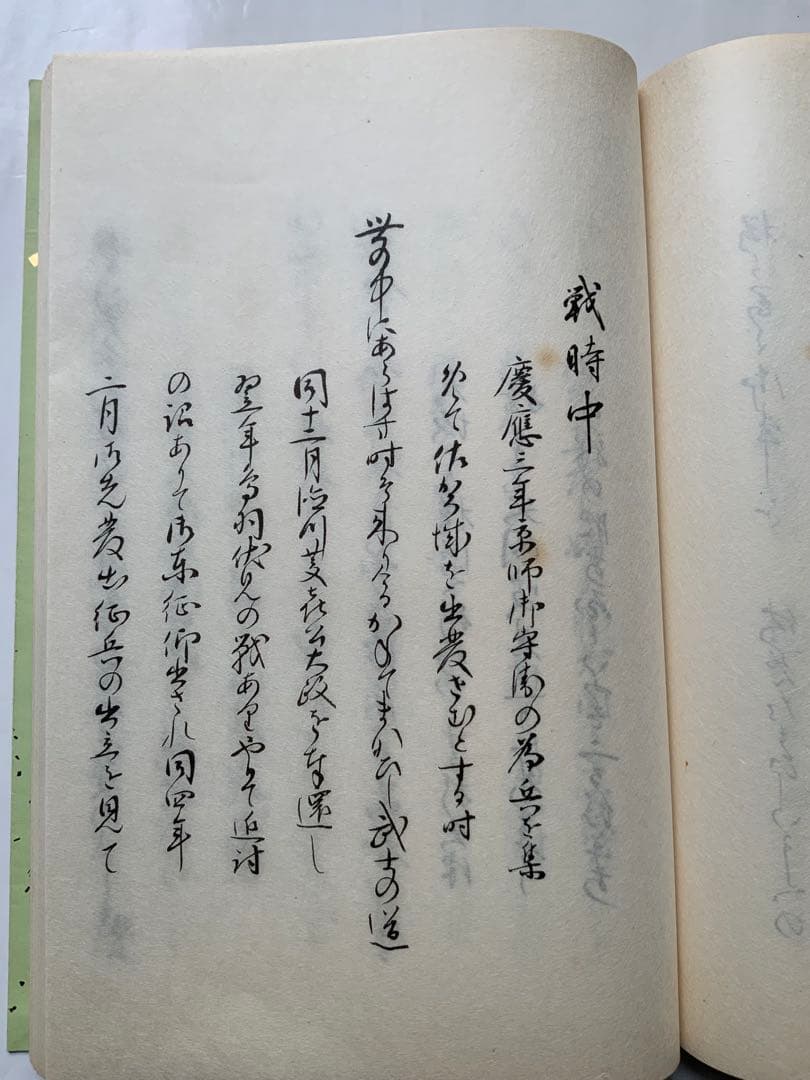 戦時中
慶應三年京師御守衛の為兵を集
めて佐賀城を出発せむとする時
世の中にあらはす時そ来りけるかねてまかひし武士の道
同十二月徳川慶喜公大政を奉還し
翌年鳥羽伏見の戦ありやかて追討
の詔ありて御東征仰出され同四年
二月御先発出征兵の出立を見て